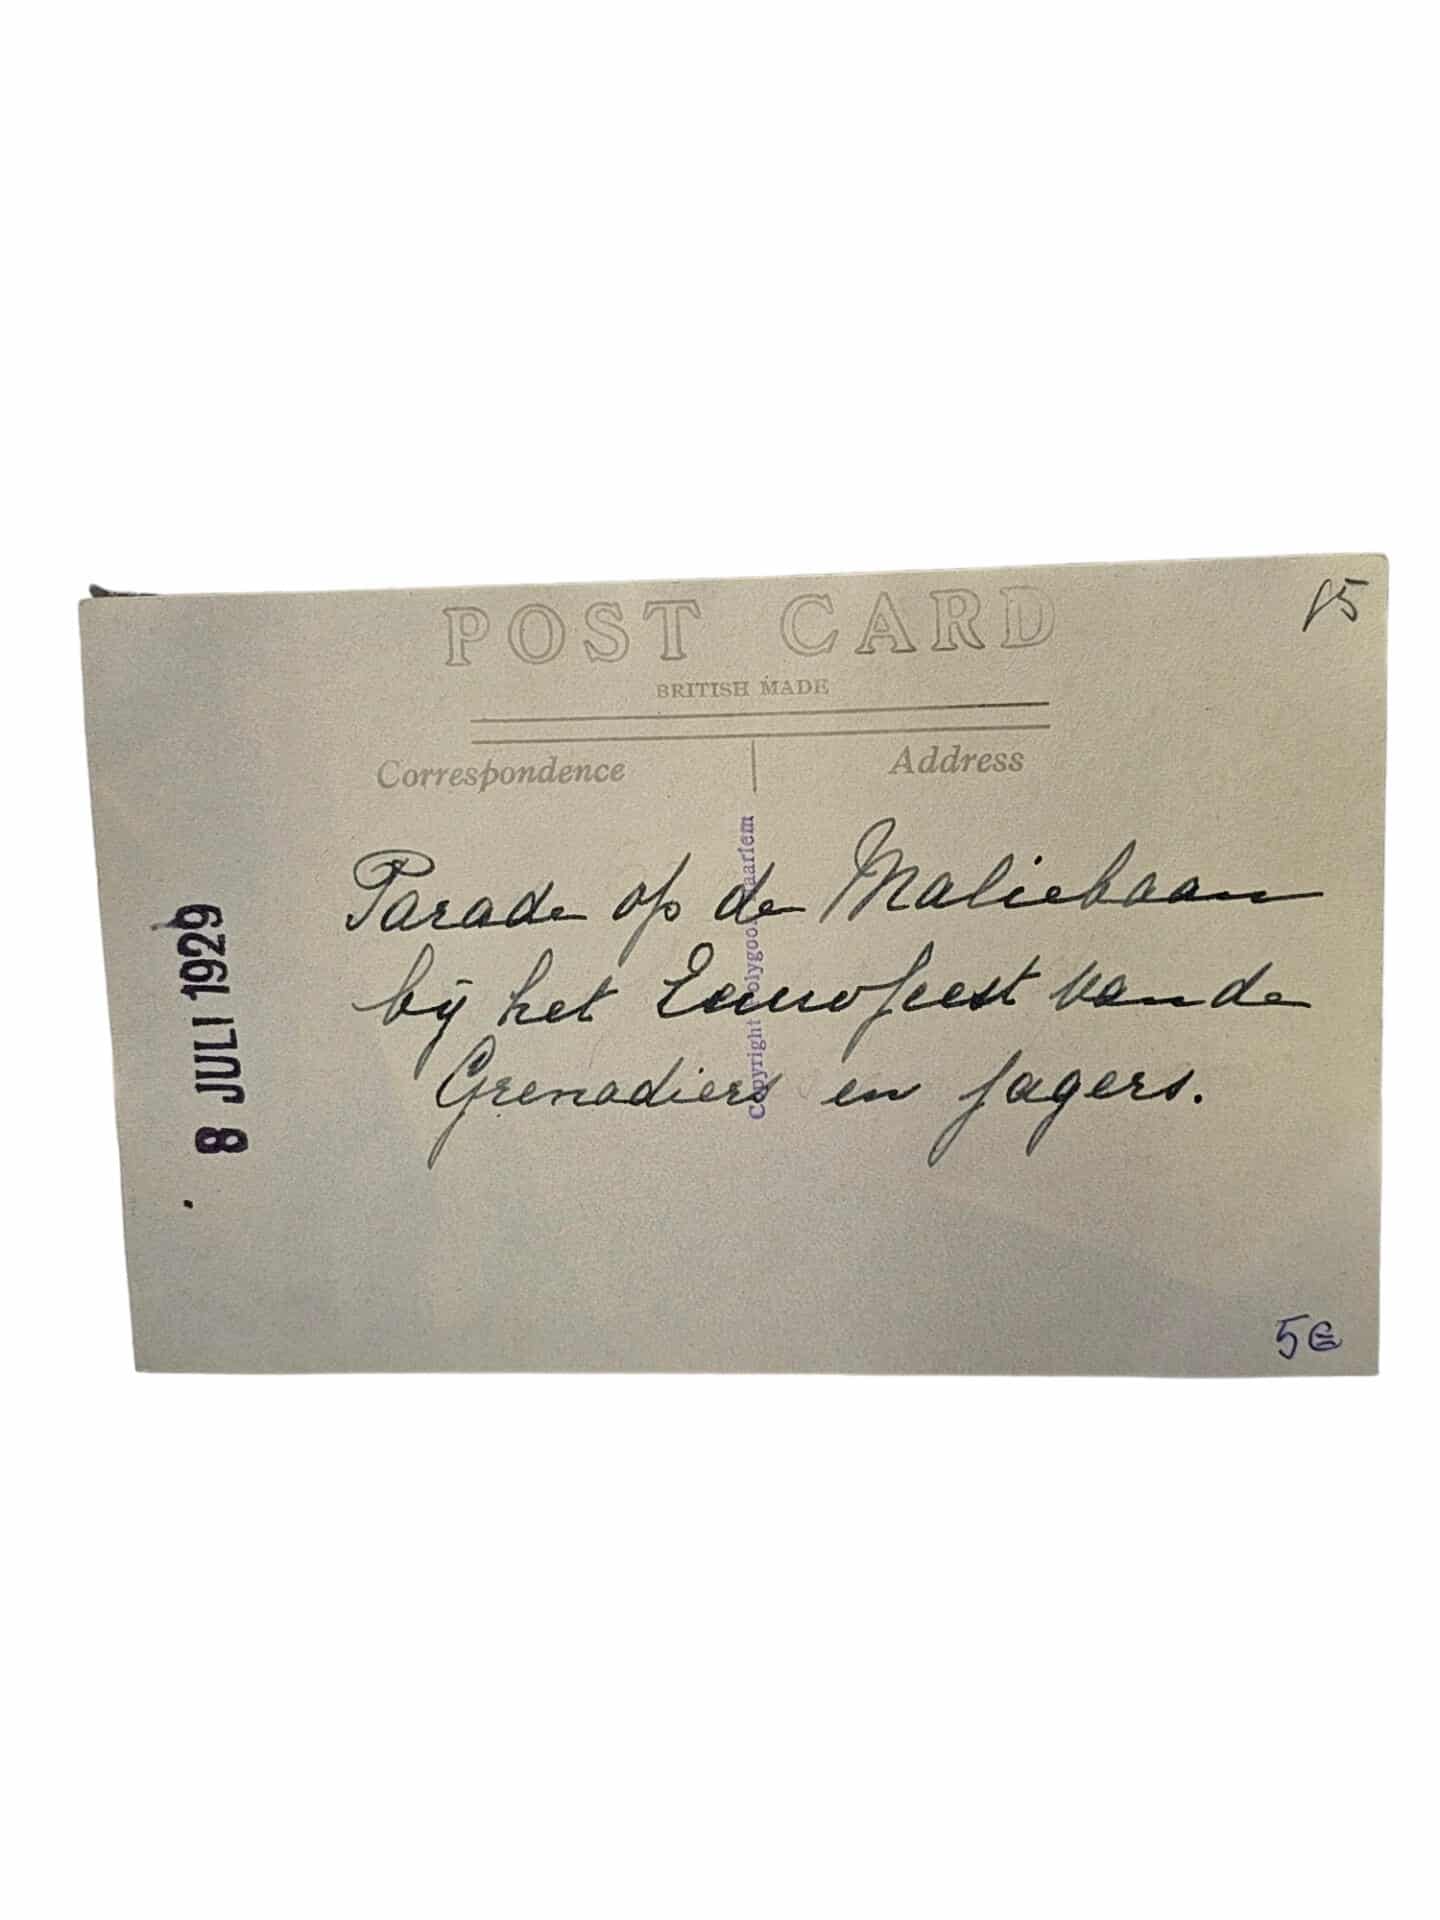 POST CARD
85
BRITISH MADE
Correspondence
Address
Parade op de Maliebaan
bij het Eeuwfeest van de
Grenadiers en Jagers.
8 JULI 1929
Copyright Polygoon Haarlem
5€